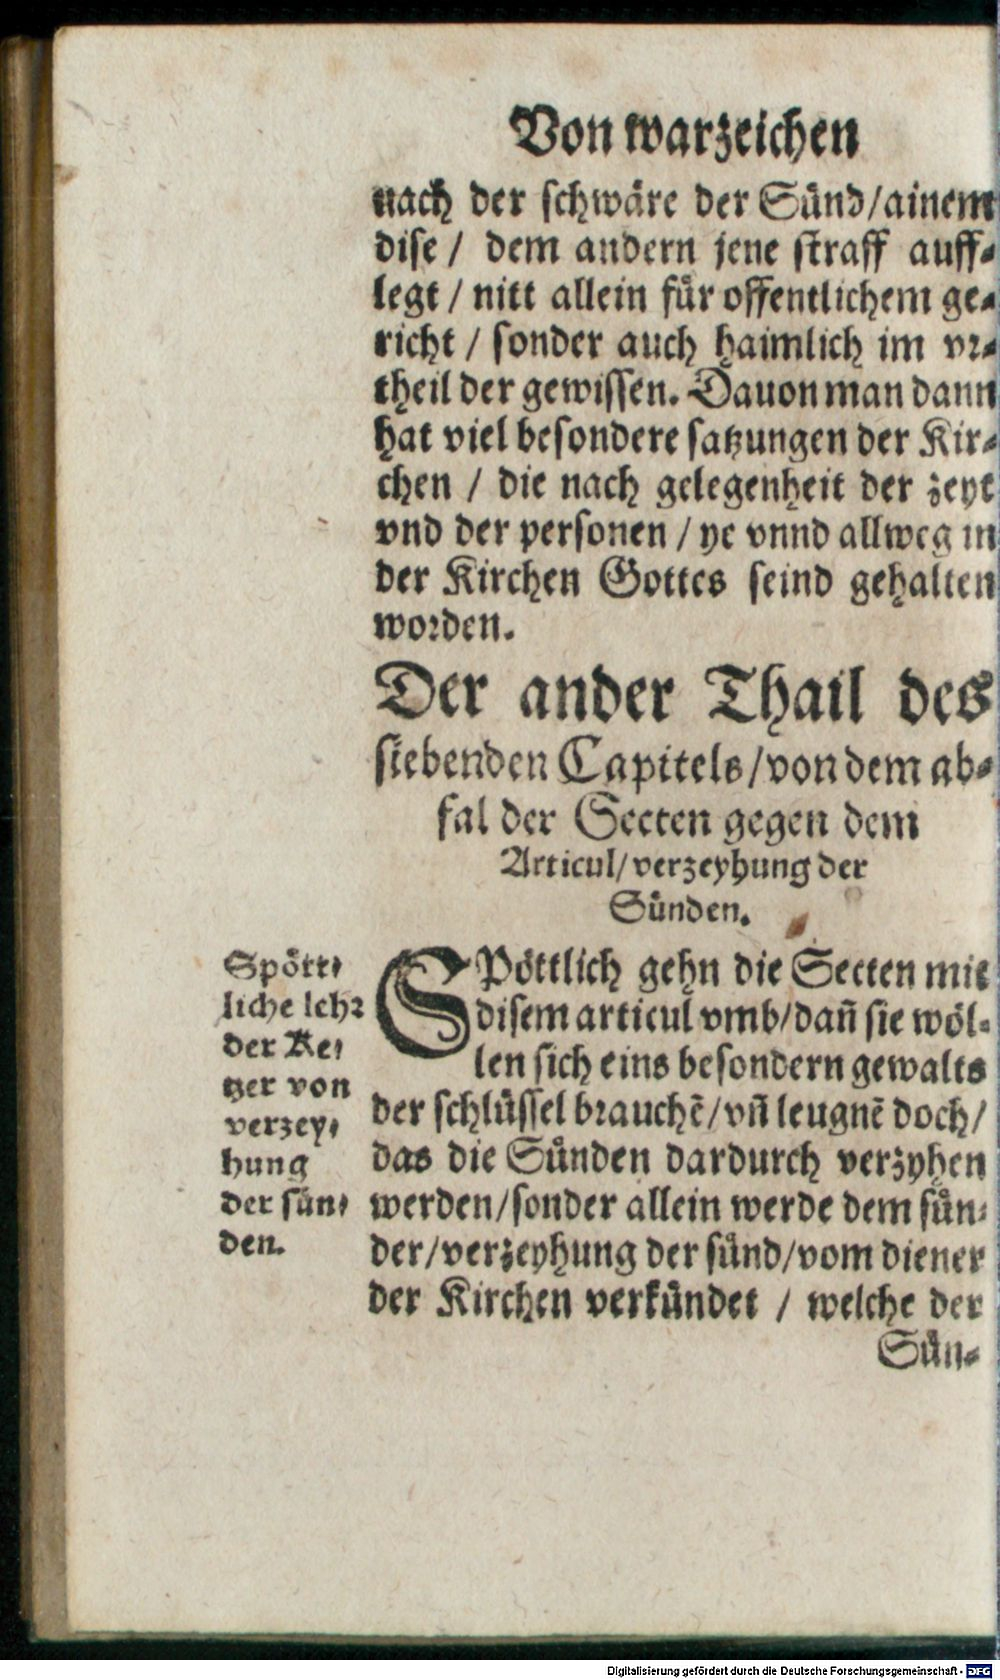 Von warzeichen
nach der schwäre der Sünd/ainem
dise / dem andern jene straff auff-
legt / nitt allein für offentlichem ge-
richt / sonder auch haimlich im vr-
theil der gewissen. Dauon man dann
hat viel besondere satzungen der Kir-
chen / die nach gelegenheit der zeyt
vnd der personen / ye vnnd allweg in
der Kirchen Gottes seind gehalten
worden.
Der ander Thail des
siebenden Capitels/von dem ab-
fal der Secten gegen dem
Articul/verzeyhung der
Sünden.
Spött-
liche lehr
der Ke-
tzer von
verzey-
hung
der sün-
den.
SPöttlich gehn die Secten mit
disem articul vmb/dañ sie wöl-
len sich eins besondern gewalts
der schlüssel brauchẽ/vñ leugnẽ doch/
das die Sünden dardurch verzyhen
werden/sonder allein werde dem sün-
der/verzeyhung der sünd/vom diener
der Kirchen verkündet / welche der
Sün-
Digitalisierung gefördert durch die Deutsche Forschungsgemeinschaft - DFG